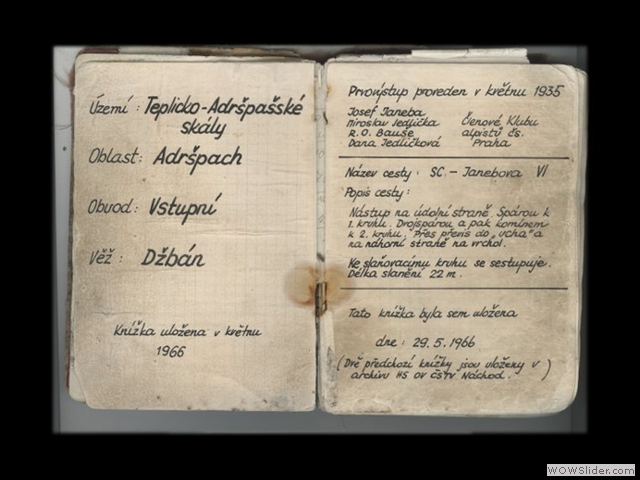 Území : Teplicko-Adršpašské
skály
Oblast: Adršpach
Obvod: Vstupní
Věž : Džbán
Knížka uložena v květnu
1966
Prvovýstup proveden v květnu 1935
Josef Janeba
Miroslav Jedlička
R. O. Bauše
Dana Jedličková
Členové Klubu
alpistů čs.
Praha
Název cesty : SC. - Janebova VI
Popis cesty:
Nástup na údolní straně. Spárou k
1. kruhu. Dvojspárou a pak komínem
k 2. kruhu. Přes převis do „ucha" a
na náhorní straně na vrchol.
Ke slaňovacímu kruhu se sestupuje.
Délka slanění 22 m.
Tato knížka byla sem uložena
dne : 29. 5. 1966
(Dvě předchozí knížky jsou uloženy v
archivu HS OV ČSTV Náchod. )
WOWSlider.com